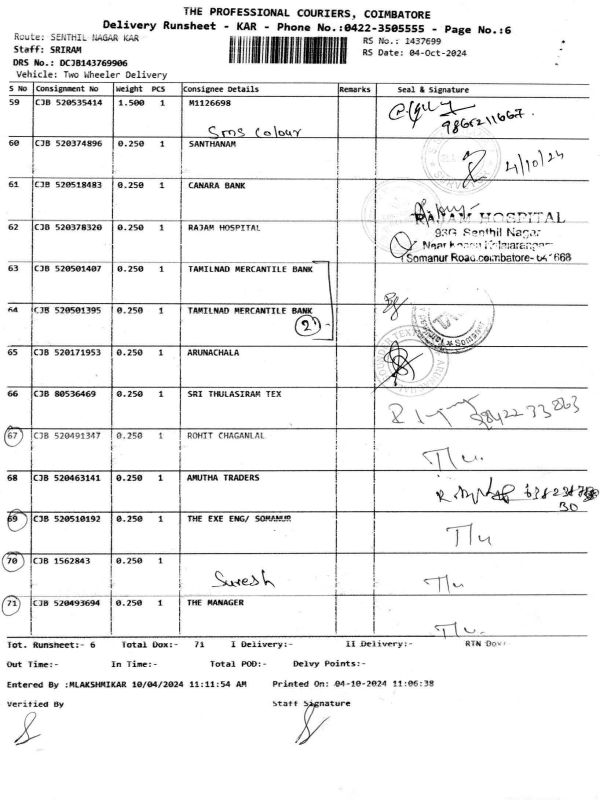 THE PROFESSIONAL COURIERS, COIMBATORE
Delivery Runsheet - KAR - Phone No.:0422-3505555 - Page No.:6
Route: SENTHIL NAGAR KAR
RS No.: 1437699
Staff: SRIRAM
RS Date: 04-Oct-2024
DRS No.: DCJB143769906
Vehicle: Two Wheeler Delivery
S No Consignment No Weight PCS Consignee Details Remarks Seal & Signature
59 CJB 520535414 1.500 1 M1126698
Sms Colour
60 CJB 520374896 0.250 1 SANTHANAM
4/10/24
61 CJB 520518483 0.250 1 CANARA BANK
62 CJB 520378320 0.250 1 RAJAM HOSPITAL
RAJAM HOSPITAL
93G Senthil Nagar
Near
Somanur Road,coimbatore-
63 CJB 520501407 0.250 1 TAMILNAD MERCANTILE BANK
64 CJB 520501395 0.250 1 TAMILNAD MERCANTILE BANK
2
65 CJB 520171953 0.250 1 ARUNACHALA
66 CJB 80536469 0.250 1 SRI THULASIRAM TEX
67 CJB 520491347 0.250 1 ROHIT CHAGANLAL
68 CJB 520463141 0.250 1 AMUTHA TRADERS
69 CJB 520510192 0.250 1 THE EXE ENG/ SOMANUR
70 CJB 1562843 0.250 1
Suresh
71 CJB 520493694 0.250 1 THE MANAGER
Tot. Runsheet:- 6 Total Dox:- 71 I Delivery:- II Delivery:- RTN Dox:
Out Time:- In Time:- Total POD:- Delvy Points:-
Entered By :MLAKSHMIKAR 10/04/2024 11:11:54 AM Printed On: 04-10-2024 11:06:38
Verified By Staff Signature